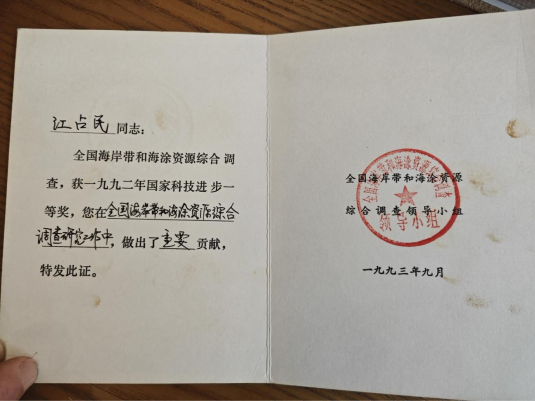 江占民同志：
全国海岸带和海涂资源综合调
查，获一九九二年国家科技进步一
等奖，您在全国海岸带和海涂资源综合
调查研究工作中，做出了重要贡献，
特发此证。
全国海岸带和海涂资源
综合调查领导小组
全国海岸带和海涂资源综合调查
领导小组
一九九三年九月